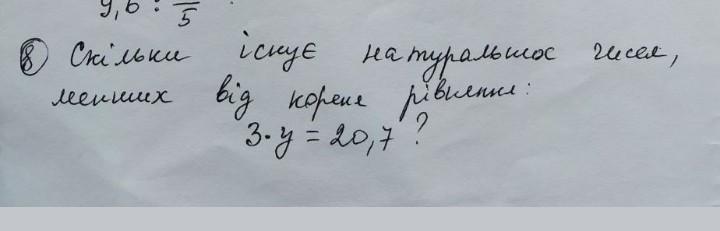 9,6 : 5
⑧ Скільки існує натуральных чисел,
менших від кореня рівняння:
3·y = 20,7 ?